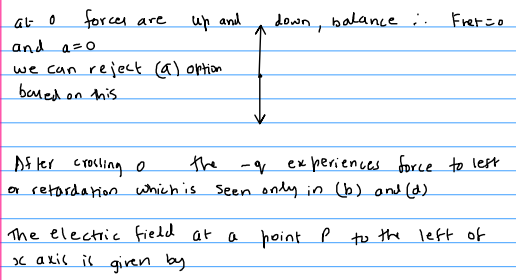 at O forces are up and down, balance ∴ Fnet=0
and a=0
we can reject (a) option
based on this
After crossing O the -q experiences force to left
or retardation which is seen only in (b) and (d)
The electric field at a point P to the left of
x axis is given by